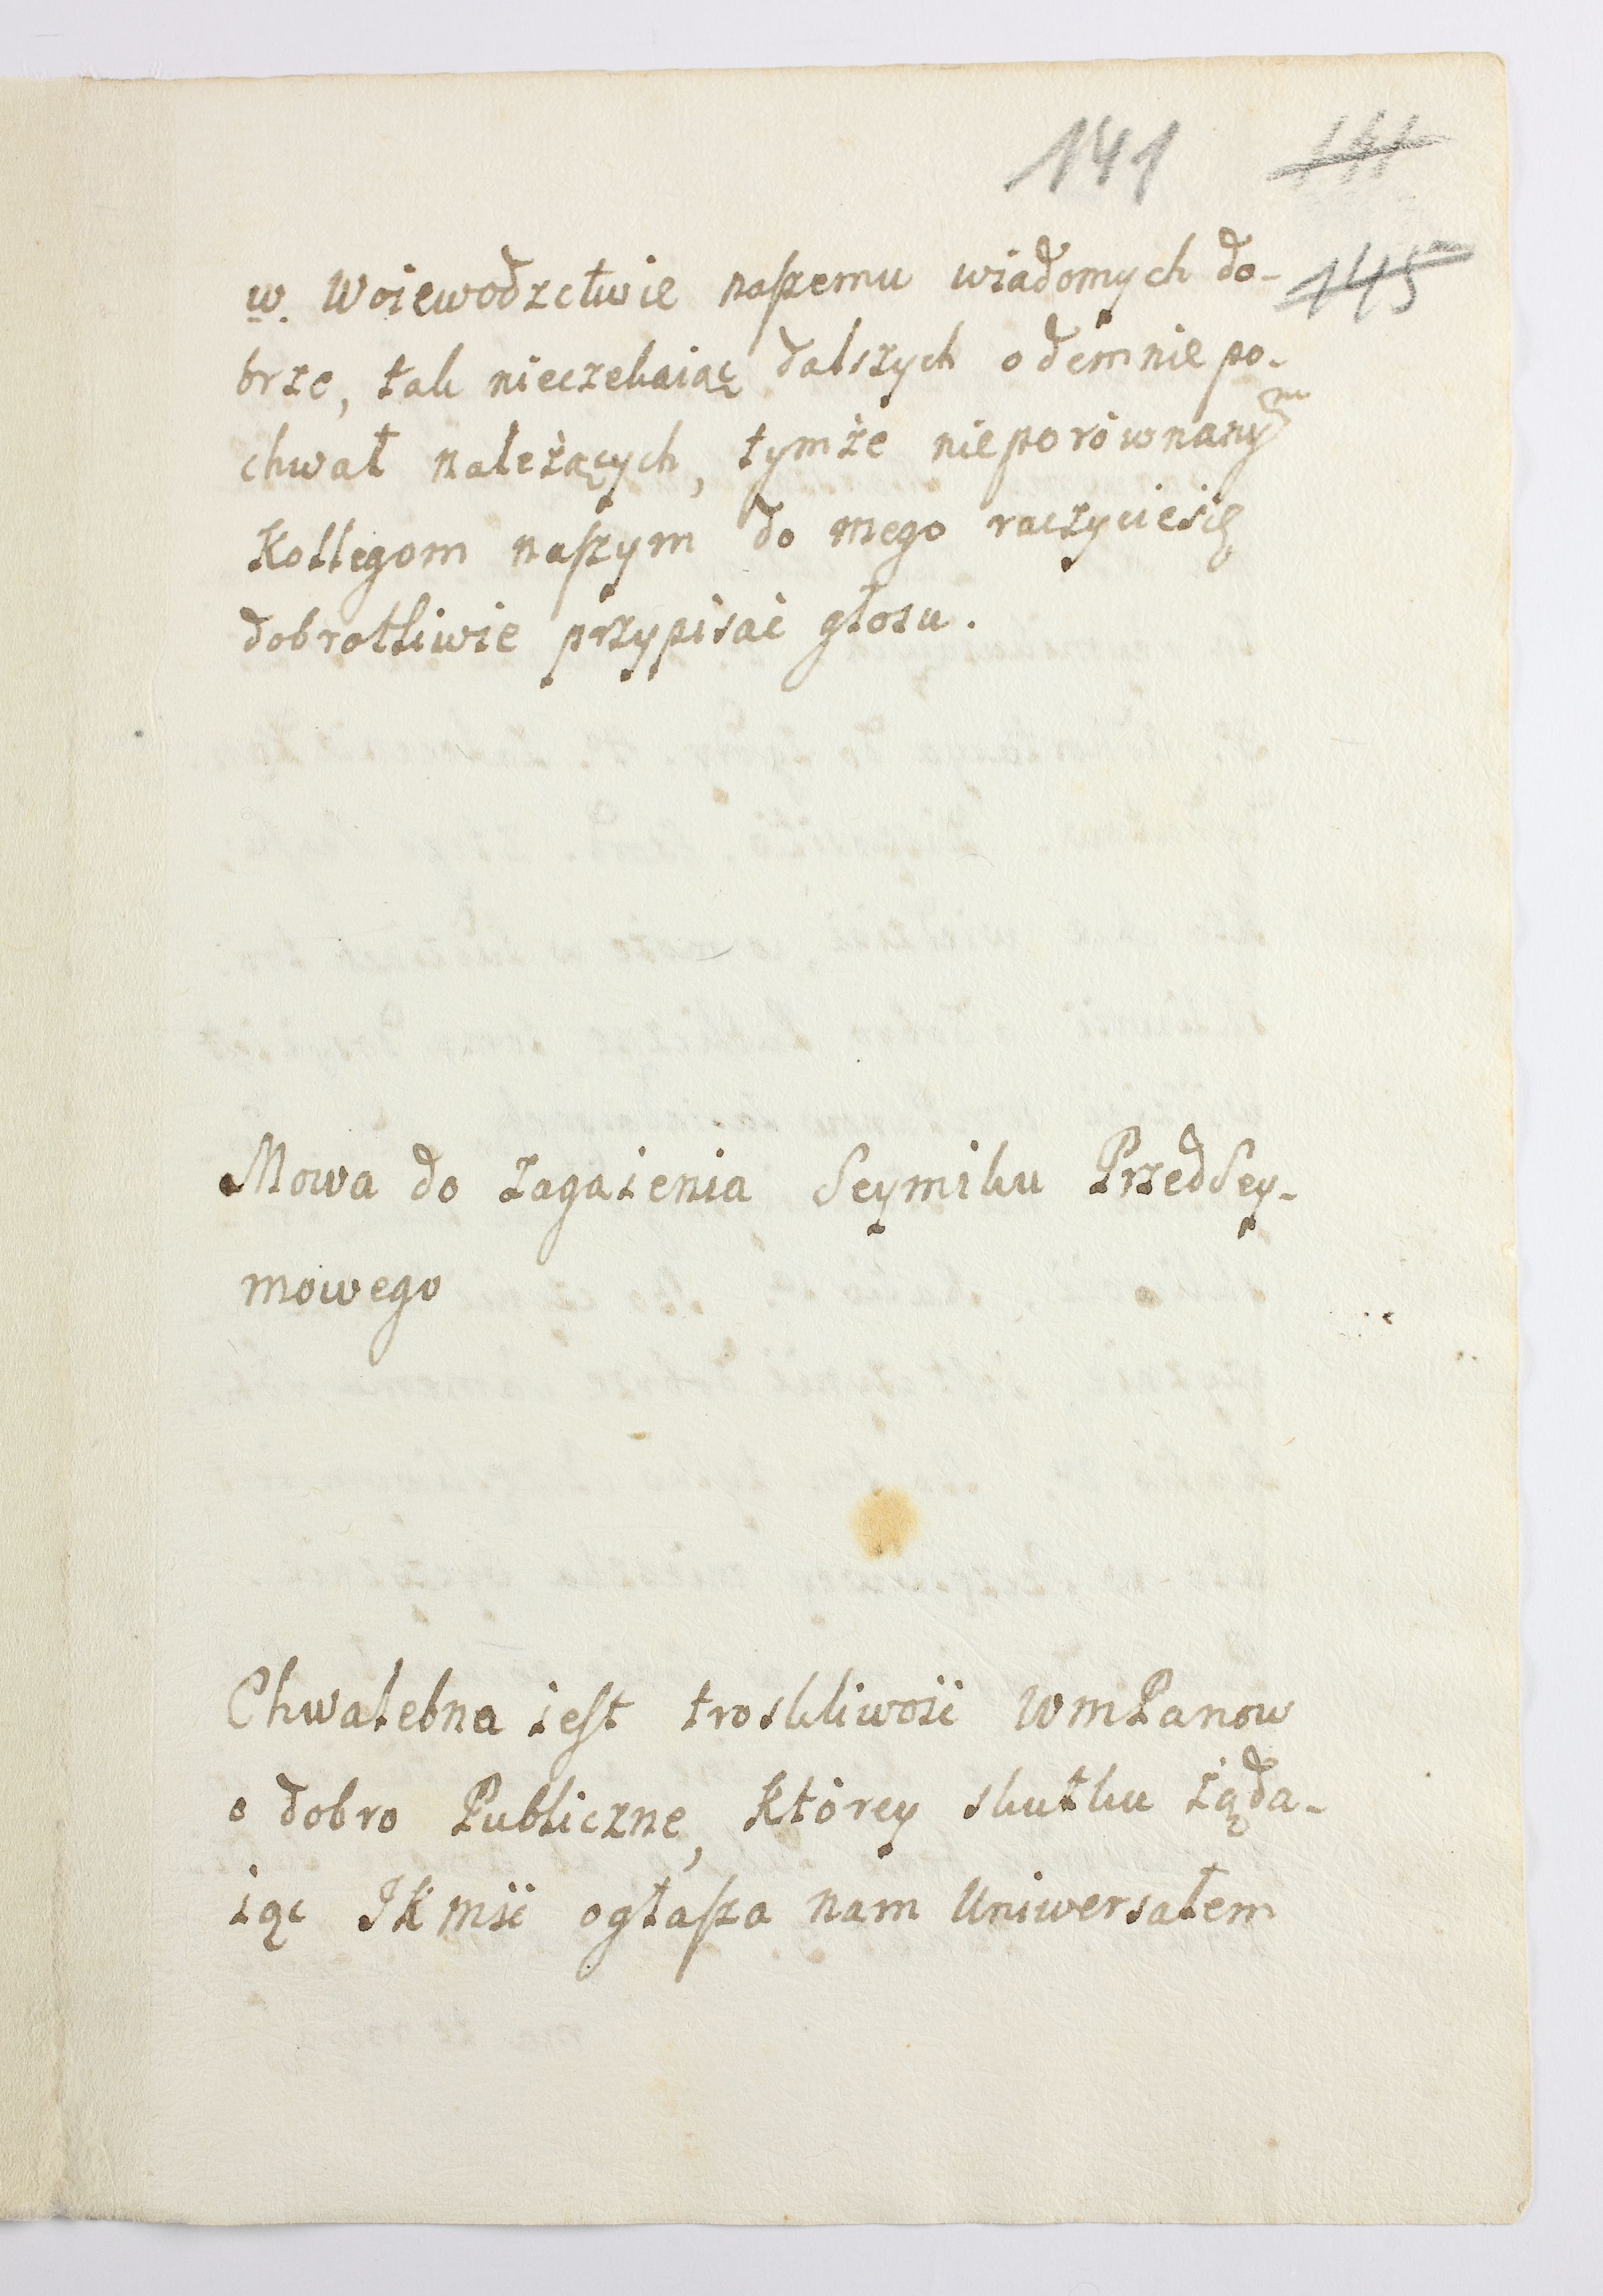 141 141
w. Woiewodzctwie naszemu wiadomych do- 145
brze, tak nieczekaiąc dalszych odemnie po-
chwał należących, tymże nieporównanym
Kollegom naszym do mego raczyciesię
dobrotliwie przypisać głosu.
Mowa do zagaienia Seymiku PrzedSey-
mowego
Chwalebna iest troskliwość WmPanow
o dobro Publiczne, którey skutku żąda-
iąc JKmść ogłasza nam Uniwersałem